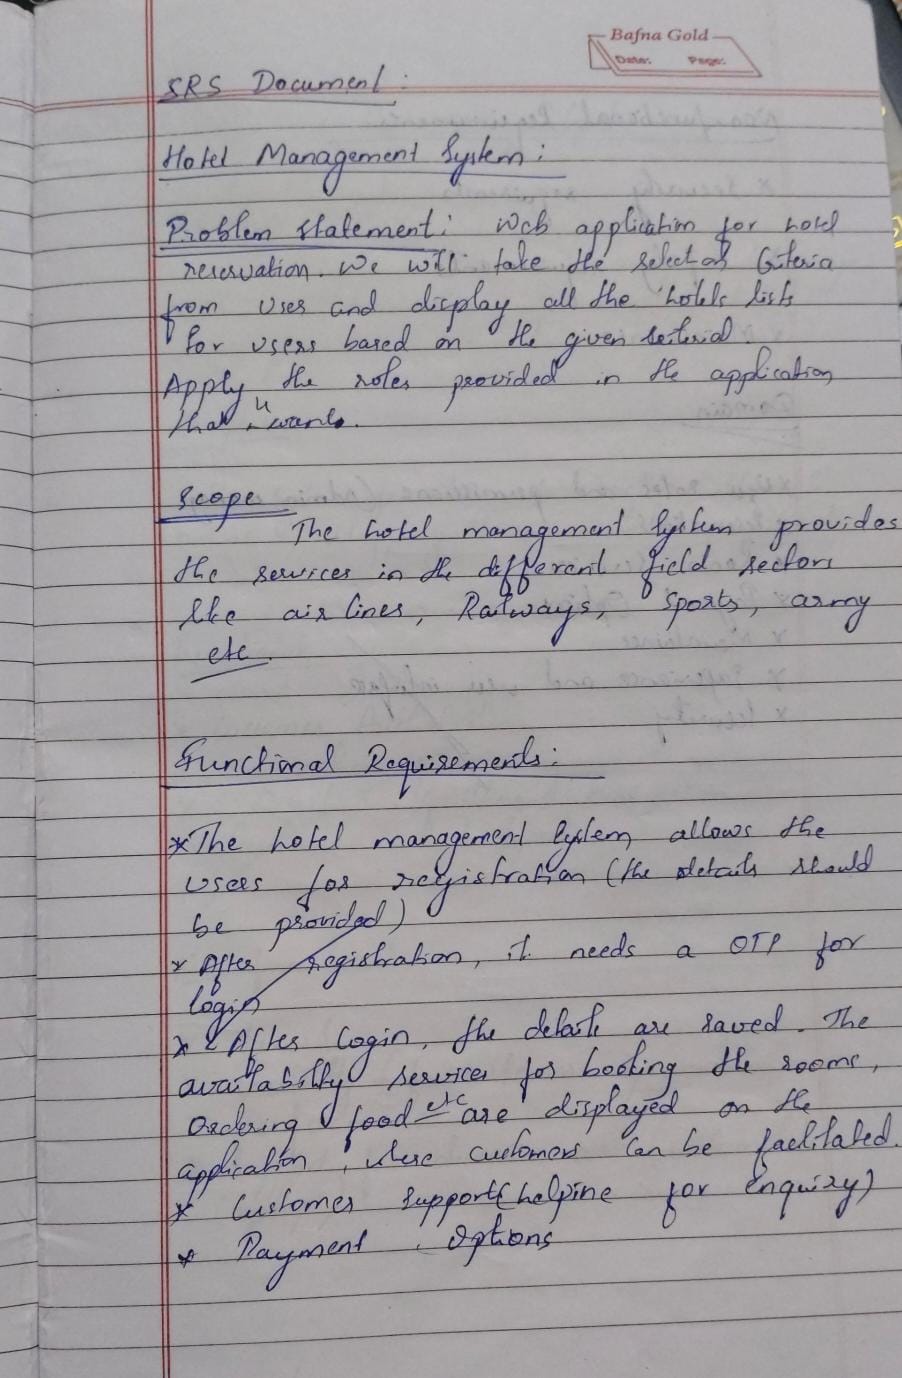 Bafna Gold
Date: Page:
SRS Document:
Hotel Management System:
Problem statement: Web application for hotel
reservation. We will take the
from uses and display all the hotels lists
for users based on the given
Apply the roles provided in the application
that wants.
Scope
The hotel management System provides
the services in the different field sectors
like air lines, Railways, sports, army
etc.
Functional Requirements:
*The hotel management System allows the
users for registration (the details should
be provided)
* After registration, it needs a OTP for
login
* After login, the details are saved. The
availability services for booking the rooms,
Ordering food etc are displayed on the
application, where customers can be facilitated.
* Customer support (helpine for enquiry)
* Payment Options